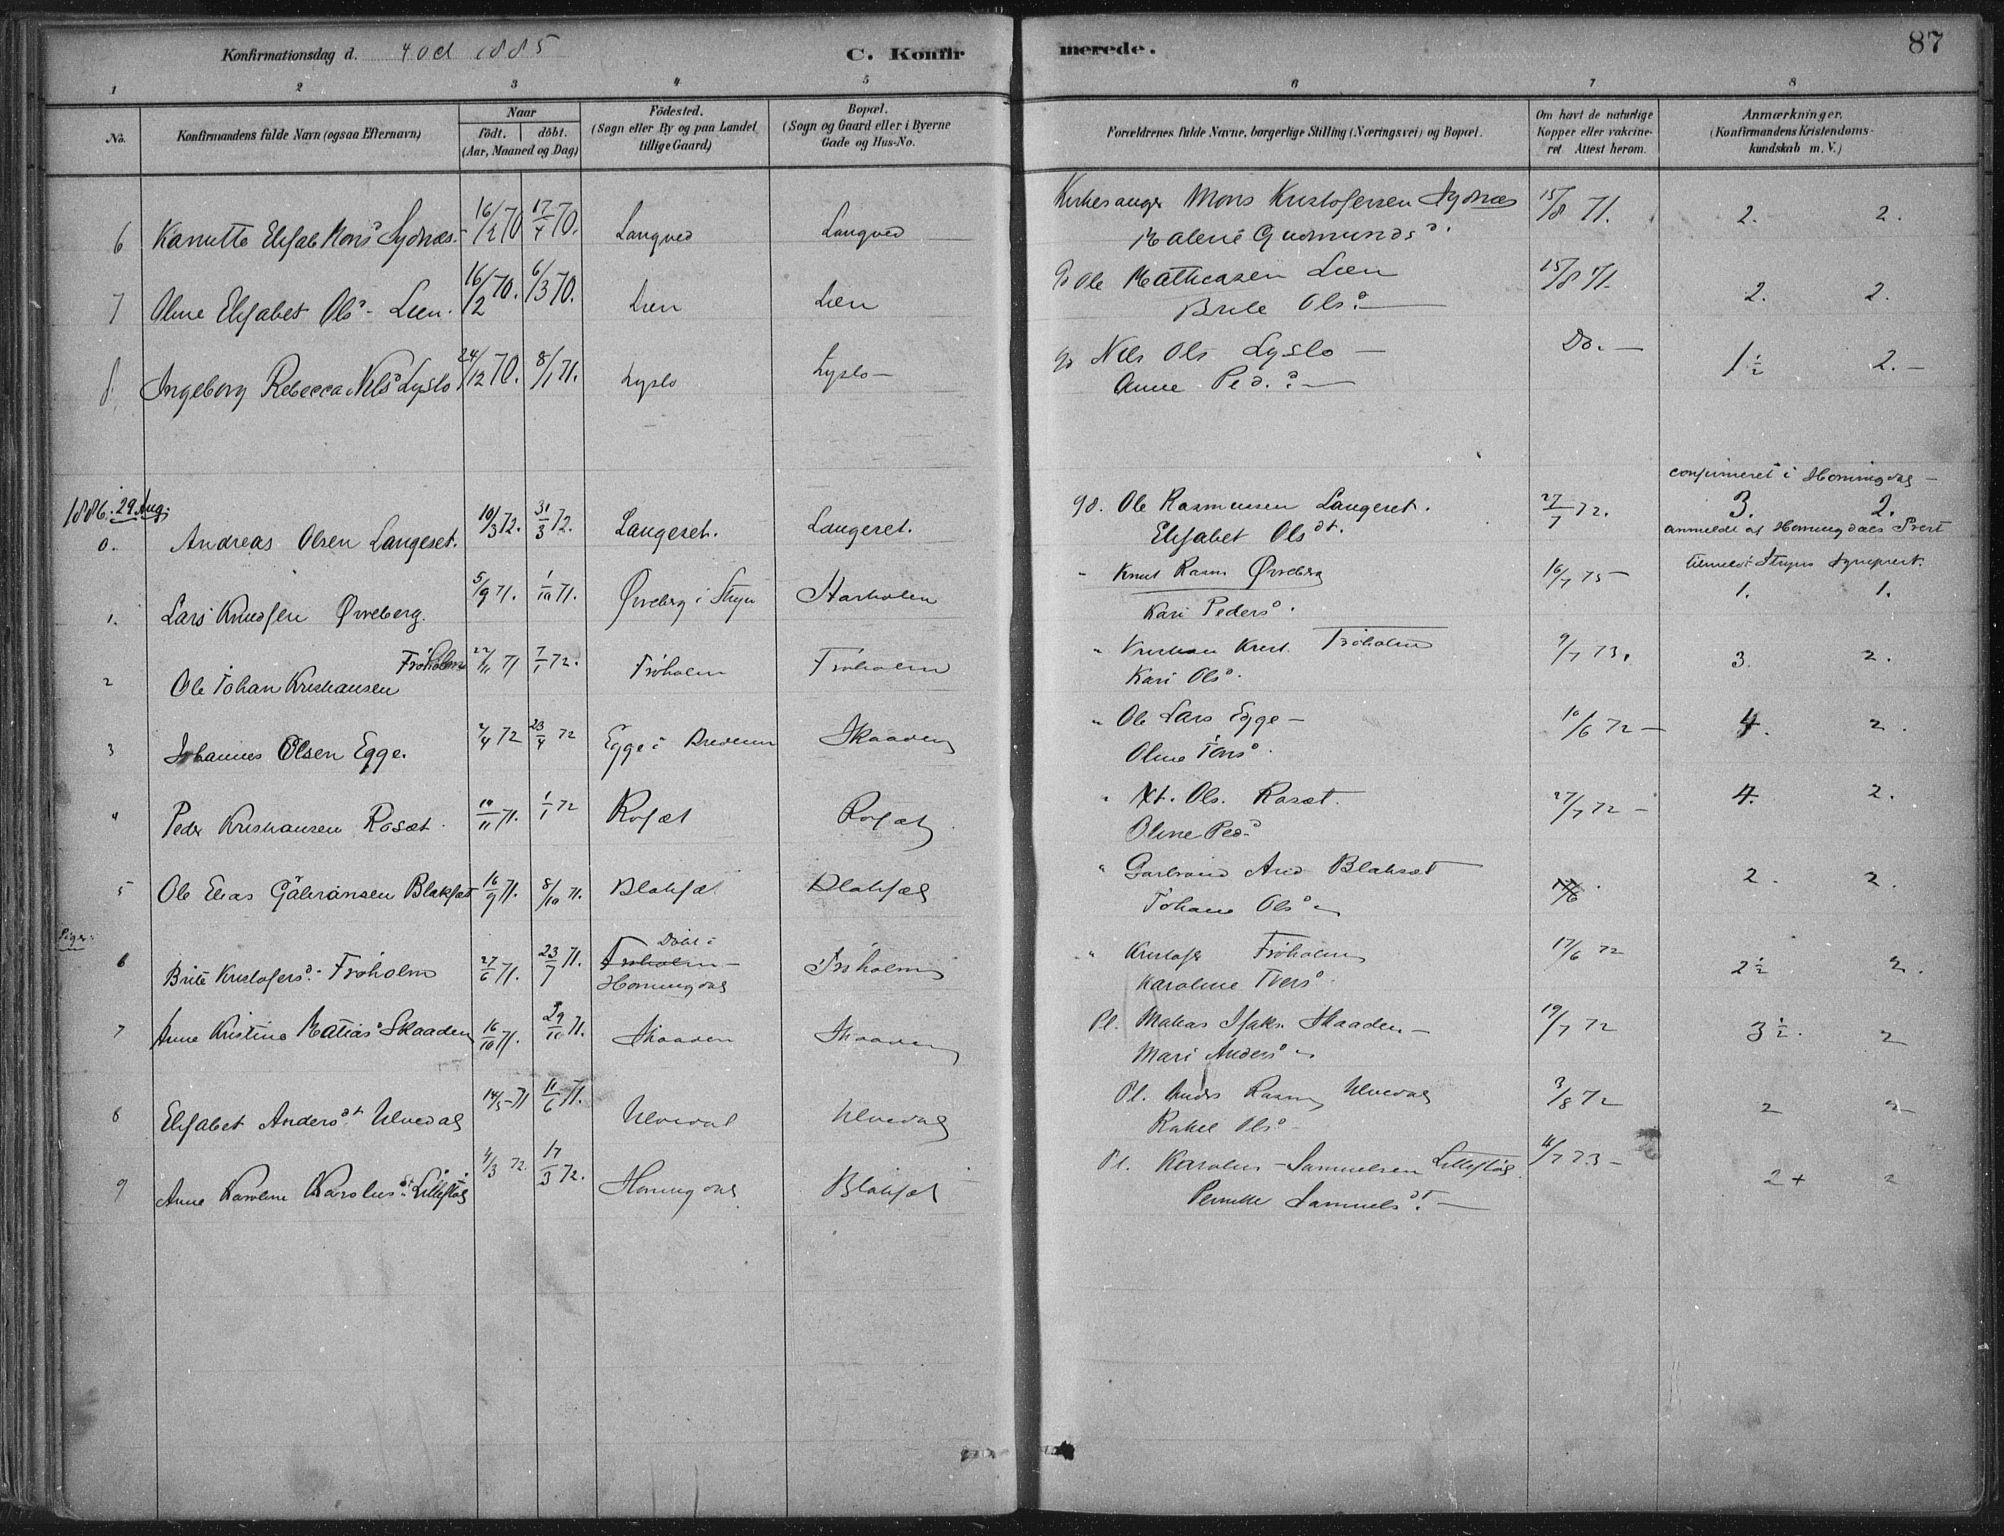 Konfirmationsdag d. 4 Oct 1885
C. Konfirmerede.
87
1 2 3 4 5 6 7 8
No.
Konfirmandens fulde Navn (ogsaa Efternavn)
Naar
födt. döbt.
(Aar, Maaned og Dag)
Födested.
(Sogn eller By og paa Landet
tillige Gaard)
Bopæl.
(Sogn og Gaard eller i Byerne
Gade og Hus-No.
Forældrenes fulde Navne, borgerlige Stilling (Næringsvei) og Bopæl.
Om havt de naturlige
Kopper eller vakcine-
ret. Attest herom.
Anmærkninger.
(Konfirmandens Kristendoms-
kundskab m. V.)
6 Elisab Mons Sydnæs 16/2 70 17/4 70. Langved Langved Kirkesanger Mons Kristofersen Sydnæs 15/8 71. 2. 2.
Malene Gudmundsd.
7 Oline Elisabet Olsd Lien. 16/2 70. 6/3 70. Lien Lien Ole Matheasen Lien 15/8 71. 2. 2.
Brite Olsd
8. Ingeborg Rebecca Nelsd Lyslo 24/12 70. 8/1 71. Lyslo Lyslo Nils Ols Lyslo Do. 1 1/2 2.
Anne Ped.
confirmeret i Horningdal
1886. 29 Aug:
0. Andreas Olsen Langeset. 10/3 72. 31/3 72. Langeset. Langeset. gd. Ole Rasmussen Langeset. 27/7 72. 3. 2.
Elisabet Olsdt. anmeldt af Horningdals Prest
1. Lars Knudsen Øvreberg. 5/9 71. 1/10 71. Øvreberg i Stryn Starholen " Knut Rasm Øvreberg 16/7 75 1. 1.
Kari Pedersd.
2 Ole Johan Kristiansen Frøholm 22/11 71 7/1 72. Frøholm Frøholm " Kristian Krist. Frøholm 9/7 73. 3. 2.
Kari Olsd.
3 Johannes Olsen Egge. 2/4 72 23/4 72 Egge i Skaaden " Ole Lars Egge 10/6 72 4. 2.
Oline
4 Peder Kristiansen Rosæt 10/11 71. 1/1 72 Rosæt Rosæt " Ols. Rosæt. 27/7 72 4. 2.
Oline Ped.
5 Ole Elias Blaksæt 16/9 71. 8/10 71. Blaksæt Blaksæt " Blaksæt 2. 2.
Johane Olsd
Piger:
6 Brite Kristofersd. Frøholm 27/6 71. 23/7 71. Frøholm Döbt i Horningdal Frøholm " Kristofer Frøholm 17/6 72 2 1/2 2.
Karoline Iversd
7 Anne Kristine Matiasd Skaaden 16/10 71. 29/10 71. Skaaden Skaaden Pl. Matias Isaks. Skaaden 19/7 72 3 1/2. 2
Mari Andersd
8 Elisabet Andersdt Ulvedal 14/5 71 11/6 71. Ulvedal Ulvedal Pl. Anders Rasm Ulvedal 3/8 72 2 2
Rakel Olsd
9 Anne Karoline Karolusdt. 4/3 72. 17/3 72. Horningdal Blaksæt Pl. Karolus Samuelsen 2 + 2
Pernille Samuelsdt.